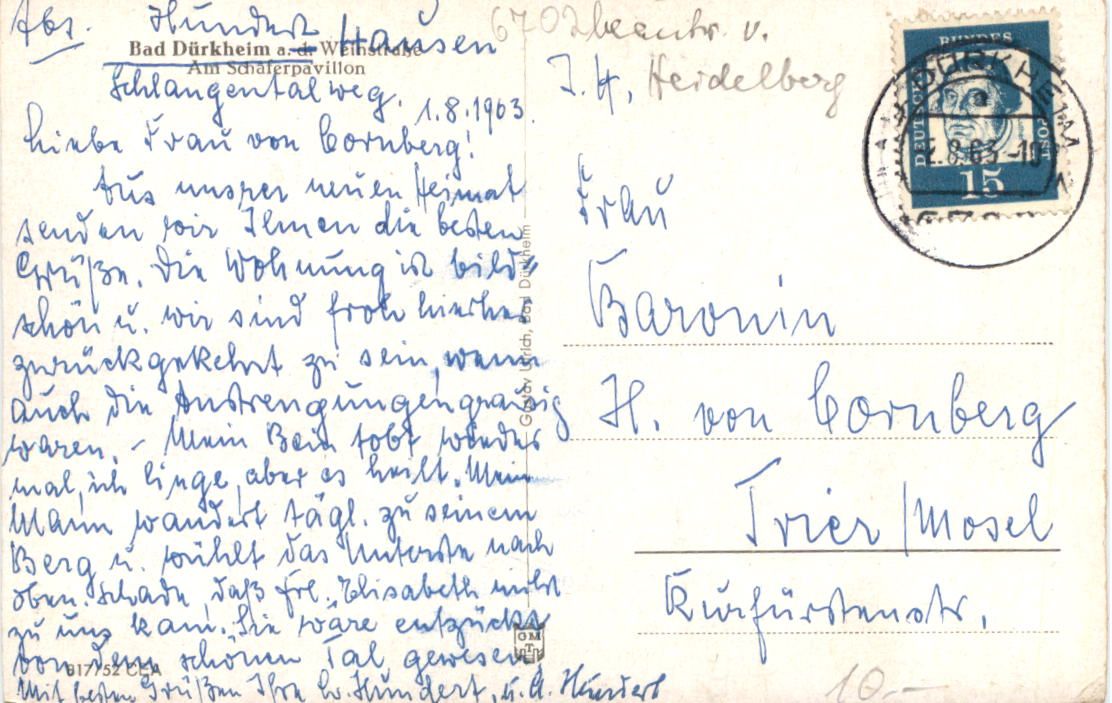 Abs. Hundert Hausen
Bad Dürkheim a. d. Weinstraße
Am Schäferpavillon
Schlangentalweg.
1.8.1963.
Liebe Frau von Cornberg!
Aus unsrer neuen Heimat
senden wir Ihnen die besten
Grüße. Die Wohnung ist bild-
schön u. wir sind froh hierher
zurückgekehrt zu sein, wenn
auch die Anstrengungen grausig
waren. – Mein Bein tobt wieder
mal, ich liege, aber es heilt. Mein
Mann wandert tägl. zu seinem
Berg u. wühlt das Unterste nach
oben. Schade, daß Frl. Elisabeth nicht
zu uns kam. Sie wäre entzückt
von dem schönen Tal gewesen
Mit besten Grüßen Ihre Hundert, u. A. Hundert
817/52 CEA
Gustav Ullrich, Bad Dürkheim
GM
6702 beantw. v.
J. H. Heidelberg
BUNDES
DEUTSCHE
POST
15
BAD DÜRKHEIM
.8.63.-10
Frau
Baronin
H. von Cornberg
Trier/Mosel
Kurfürstenstr.
10.–